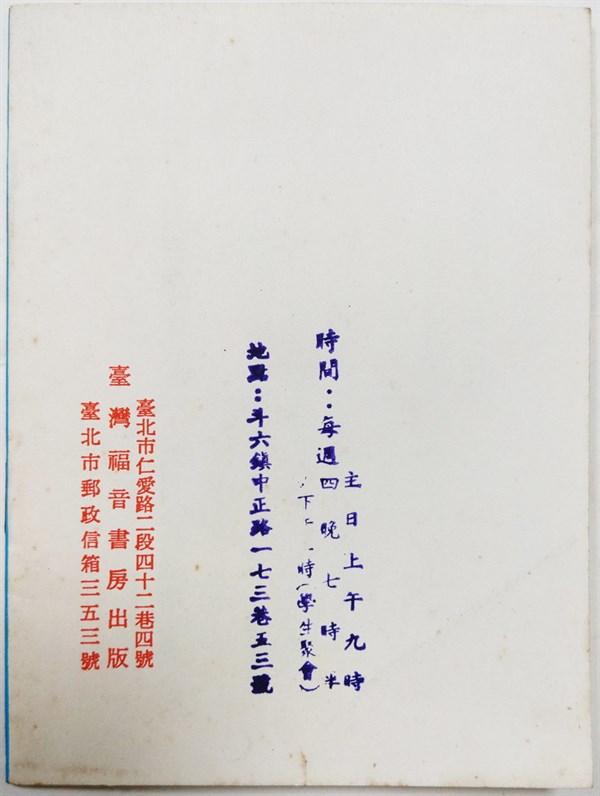 主日上午九時
時間：每週四晚七時半
下午一時（學生聚會）
地點：斗六鎮中正路一七三巷五三號
臺北市仁愛路二段四十二巷四號
臺灣福音書房出版
臺北市郵政信箱三五三號